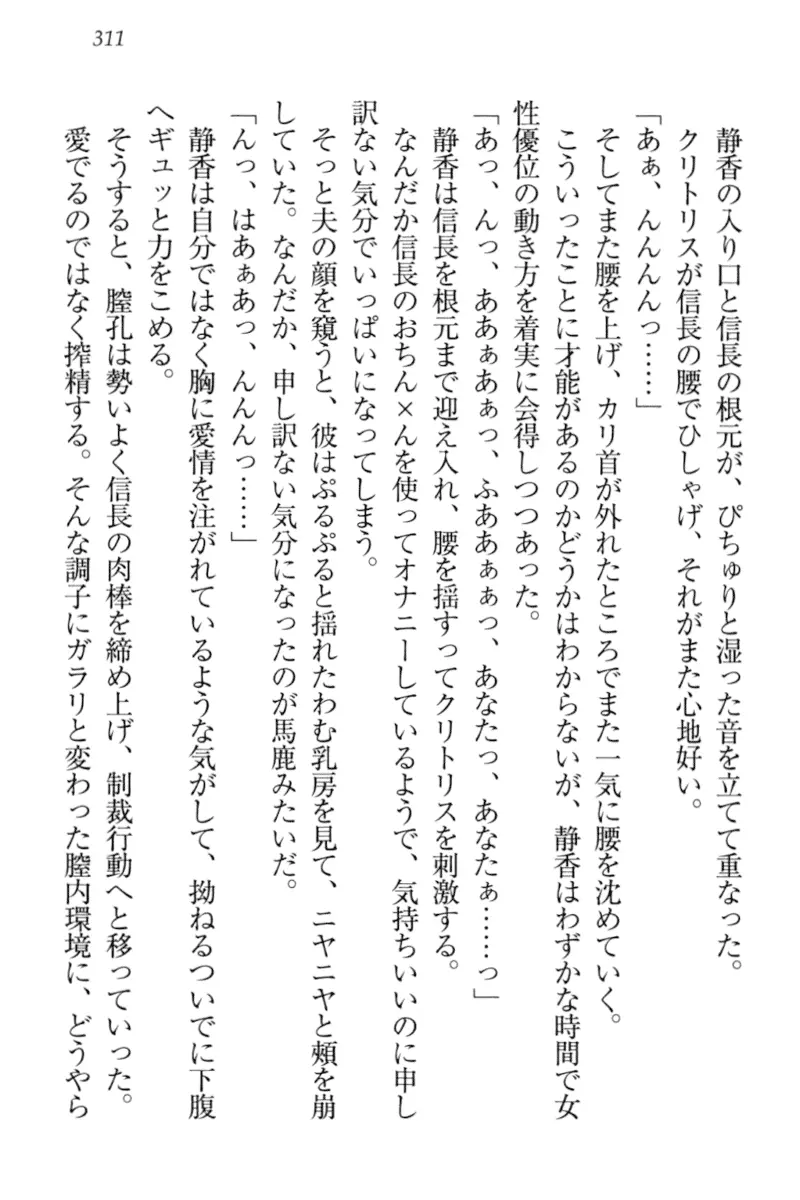 311
静香の入り口と信長の根元が、ぴちゅりと湿った音を立てて重なった。
クリトリスが信長の腰でひしゃげ、それがまた心地好い。
「あぁ、んんんんっ……」
そしてまた腰を上げ、カリ首が外れたところでまた一気に腰を沈めていく。
こういったことに才能があるのかどうかはわからないが、静香はわずかな時間で女
性優位の動き方を着実に会得しつつあった。
「あっ、んっ、ああぁあぁっ、ふああぁぁっ、あなたっ、あなたぁ……っ」
静香は信長を根元まで迎え入れ、腰を揺すってクリトリスを刺激する。
なんだか信長のおちん×んを使ってオナニーしているようで、気持ちいいのに申し
訳ない気分でいっぱいになってしまう。
そっと夫の顔を窺うと、彼はぷるぷると揺れたわむ乳房を見て、ニヤニヤと頰を崩
していた。なんだか、申し訳ない気分になったのが馬鹿みたいだ。
「んっ、はあぁあっ、んんんっ……」
静香は自分ではなく胸に愛情を注がれているような気がして、拗ねるついでに下腹
へギュッと力をこめる。
そうすると、膣孔は勢いよく信長の肉棒を締め上げ、制裁行動へと移っていった。
愛でるのではなく搾精する。そんな調子にガラリと変わった膣内環境に、どうやら